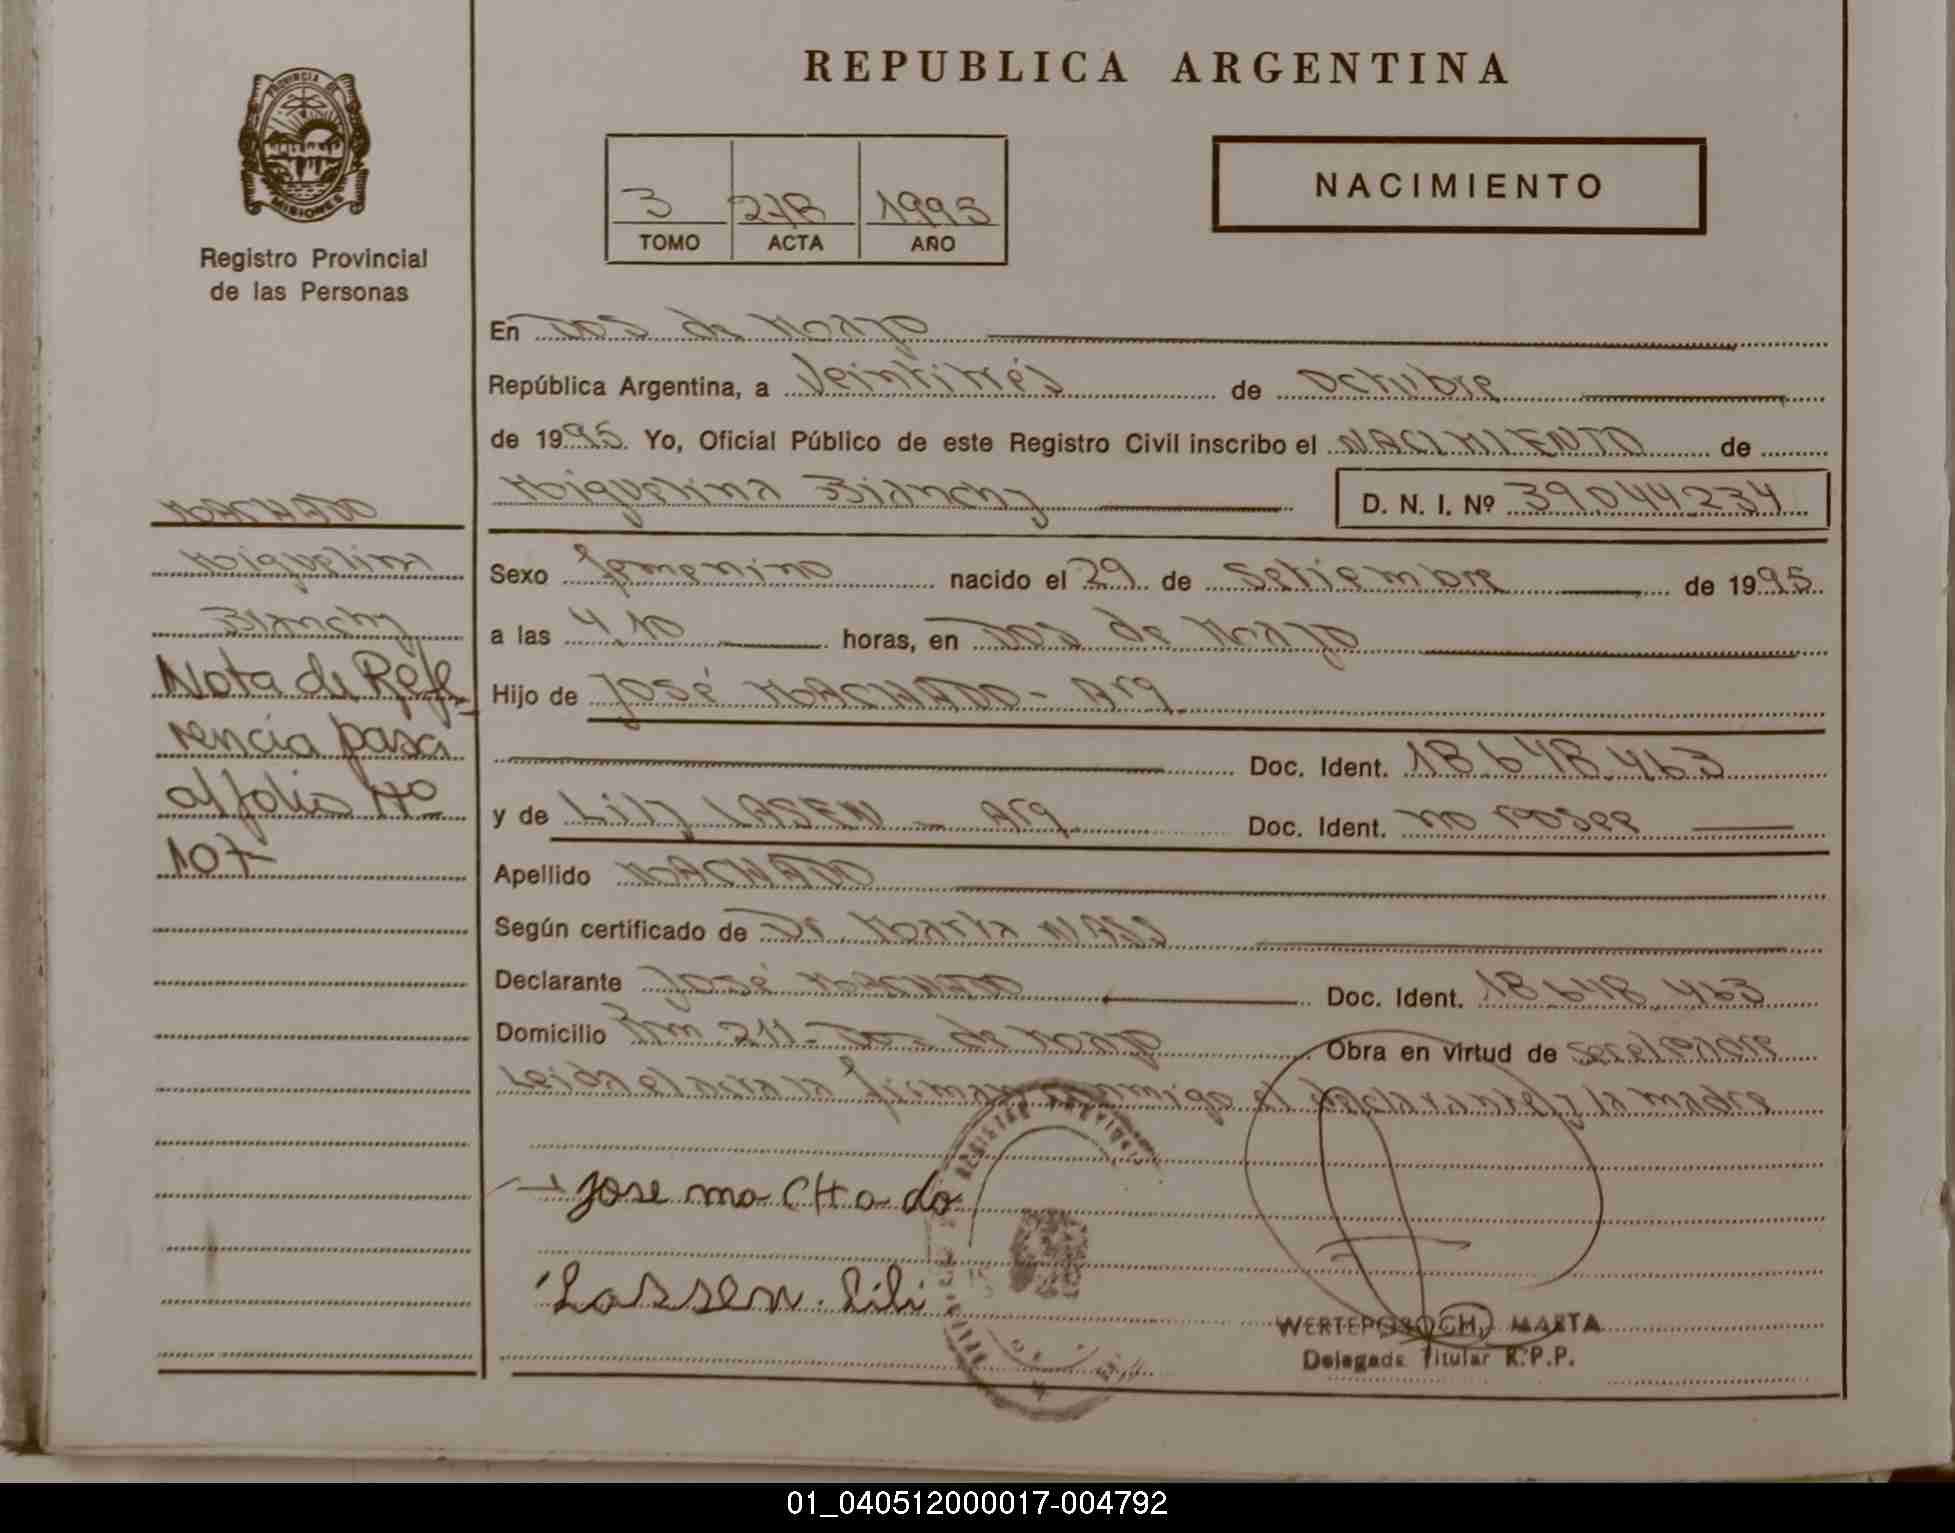 REPUBLICA ARGENTINA
PROVINCIA DE
MISIONES
Registro Provincial
de las Personas
3 278 1995
TOMO ACTA AÑO
NACIMIENTO
En Dos de Mayo
República Argentina, a Veintitrés de Octubre
de 1995. Yo, Oficial Público de este Registro Civil inscribo el NACIMIENTO de
Miguelina Bianchy D. N. I. Nº 39.044.234
Sexo femenino nacido el 29 de Setiembre de 1995.
a las 4,10 horas, en Dos de Mayo
Hijo de José MACHADO - Arg.
Doc. Ident. 18.648.463
y de Lily LASEN - Arg. Doc. Ident. no posee
Apellido MACHADO
Según certificado de Dr. Marta
Declarante José MACHADO Doc. Ident. 18.648.463
Domicilio Km 211 - Dos de Mayo Obra en virtud de ser el padre
Leída el acta la firman conmigo el declarante y la madre
Jose machado
Lassen. lili
MARTA
Delegada Titular R.P.P.
MACHADO
Miguelina
Bianchy
Nota de Refe-
rencia pasa
al folio Nº
107
01_040512000017-004792